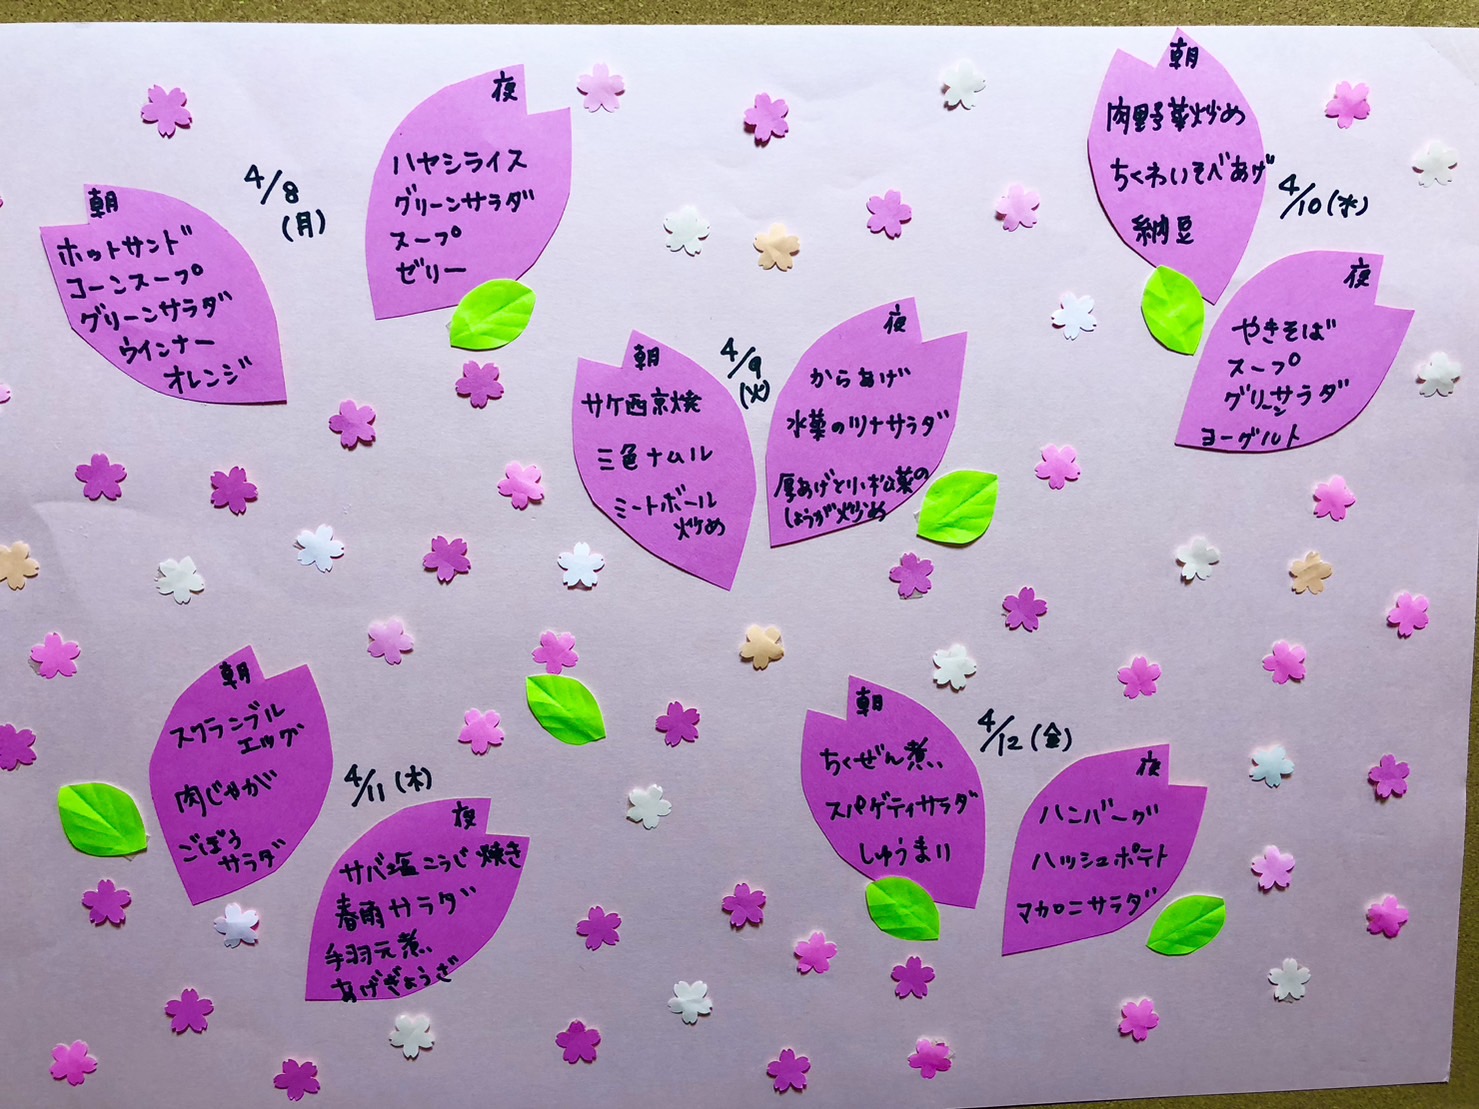 4/8
(月)
朝
ホットサンド
コーンスープ
グリーンサラダ
ウインナー
オレンジ
夜
ハヤシライス
グリーンサラダ
スープ
ゼリー
4/9
(火)
朝
サケ西京焼
三色ナムル
ミートボール
炒め
夜
からあげ
水菜のツナサラダ
厚あげと小松菜の
しょうが炒め
4/10(水)
朝
肉野菜炒め
ちくわいそべあげ
納豆
夜
やきそば
スープ
グリーンサラダ
ヨーグルト
4/11(木)
朝
スクランブル
エッグ
肉じゃが
ごぼう
サラダ
夜
サバ塩こうじ焼き
春雨サラダ
手羽元煮
あげぎょうざ
4/12(金)
朝
ちくぜん煮
スパゲティサラダ
しゅうまい
夜
ハンバーグ
ハッシュポテト
マカロニサラダ